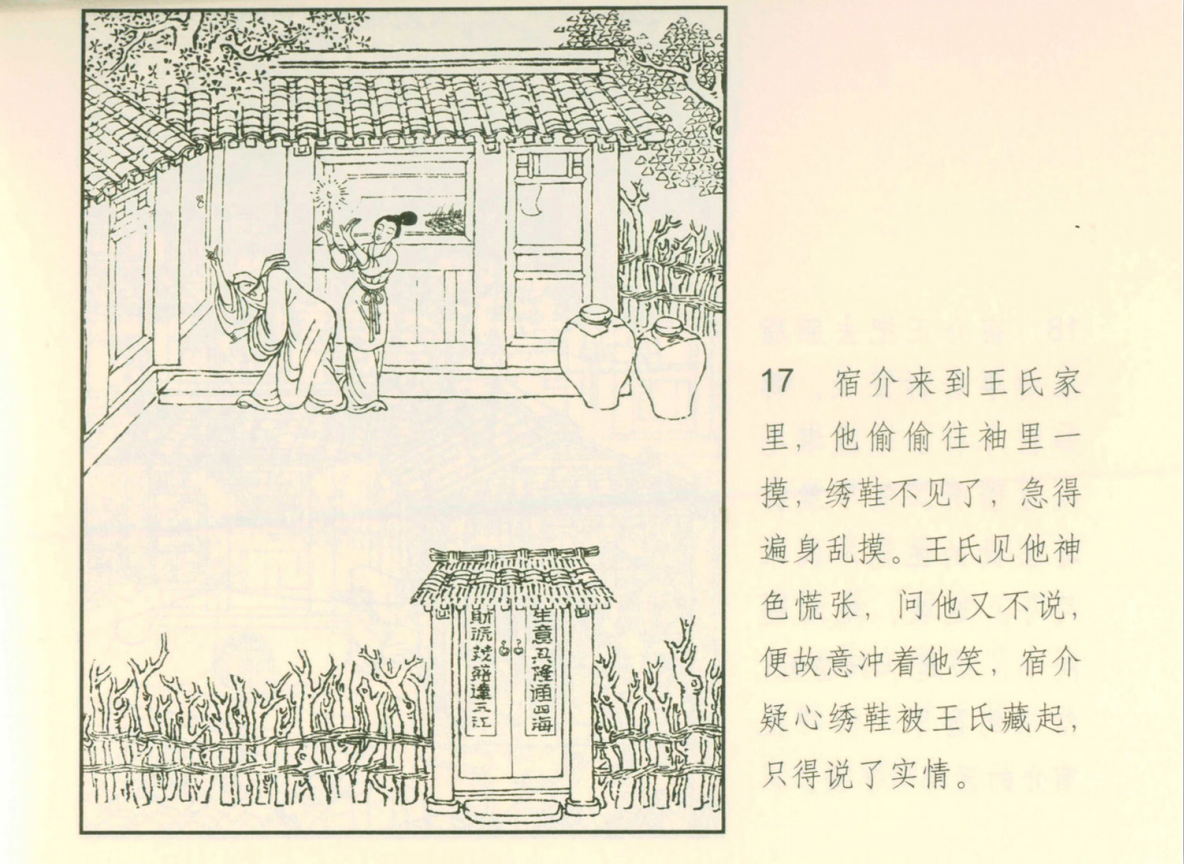 17 宿介来到王氏家
里，他偷偷往袖里一
摸，绣鞋不见了，急得
遍身乱摸。王氏见他神
色慌张，问他又不说，
便故意冲着他笑，宿介
疑心绣鞋被王氏藏起，
只得说了实情。
生意兴隆通四海
财源茂盛达三江